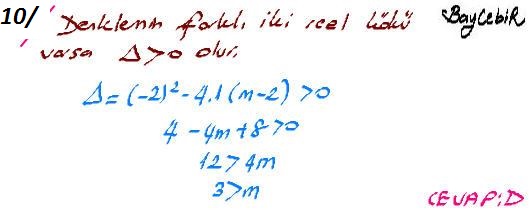 10/ Denklemin farklı iki reel kökü BayCebiR
varsa Δ>0 olur.
Δ=(-2)²-4.1(m-2)>0
4-4m+8>0
12>4m
3>m
CEVAP:D